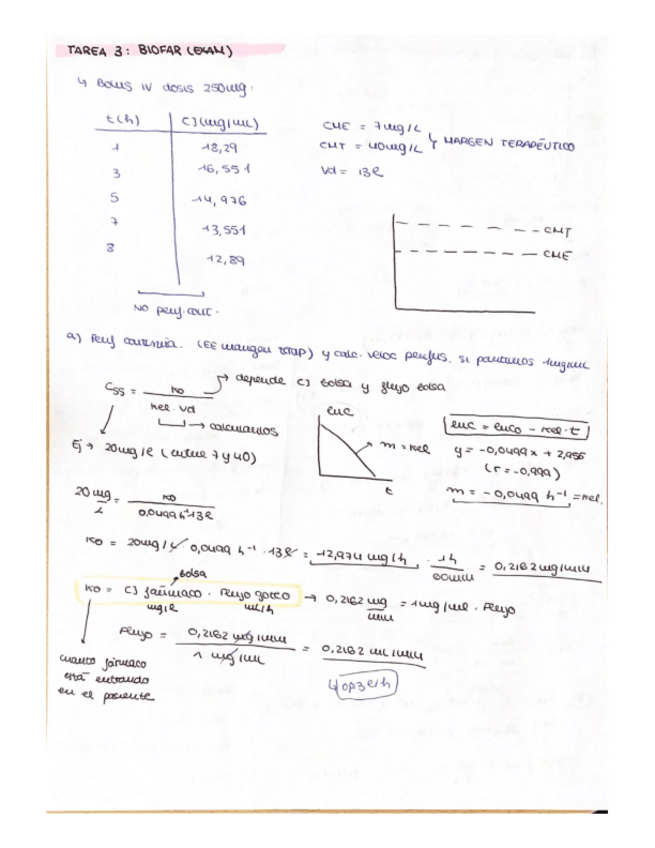 TAREA 3: BIOFAR (EXAM)
↳ Bolus IV dosis 250mg.
t(h) C](mg/mL)
1 18,29
3 16,551
5 14,976
7 13,551
8 12,89
NO perf. cont.
CME = 7mg/L
CMT = 40mg/L
} MARGEN TERAPÉUTICO
Vd = 13l
CMT
CME
a) Perf continua. (EE margen terap) y calc. veloc perfus. si partimos 1mg/mL
Css = K0 / Kel · Vd
→ depende C] bolsa y flujo bolsa
→ calculamos
Ej → 20mg/l (entre 7 y 40)
lnC
m = Kel
t
lnC = lnC0 - Kel · t
y = -0,0499x + 2,956
(r = -0,999)
m = -0,0499 h⁻¹ = Kel.
20 mg/L = K0 / 0,0499 h⁻¹ 13l
K0 = 20mg/L · 0,0499 h⁻¹ · 13l = 12,974 mg/h · 1h/60min = 0,2162 mg/min
bolsa
K0 = C] fármaco · flujo goteo → 0,2162 mg/min = 1mg/mL · flujo
mg/l mL/h
Flujo = 0,2162 mg/min / 1 mg/mL = 0,2162 mL/min
cuanto fármaco
está entrando
en el paciente